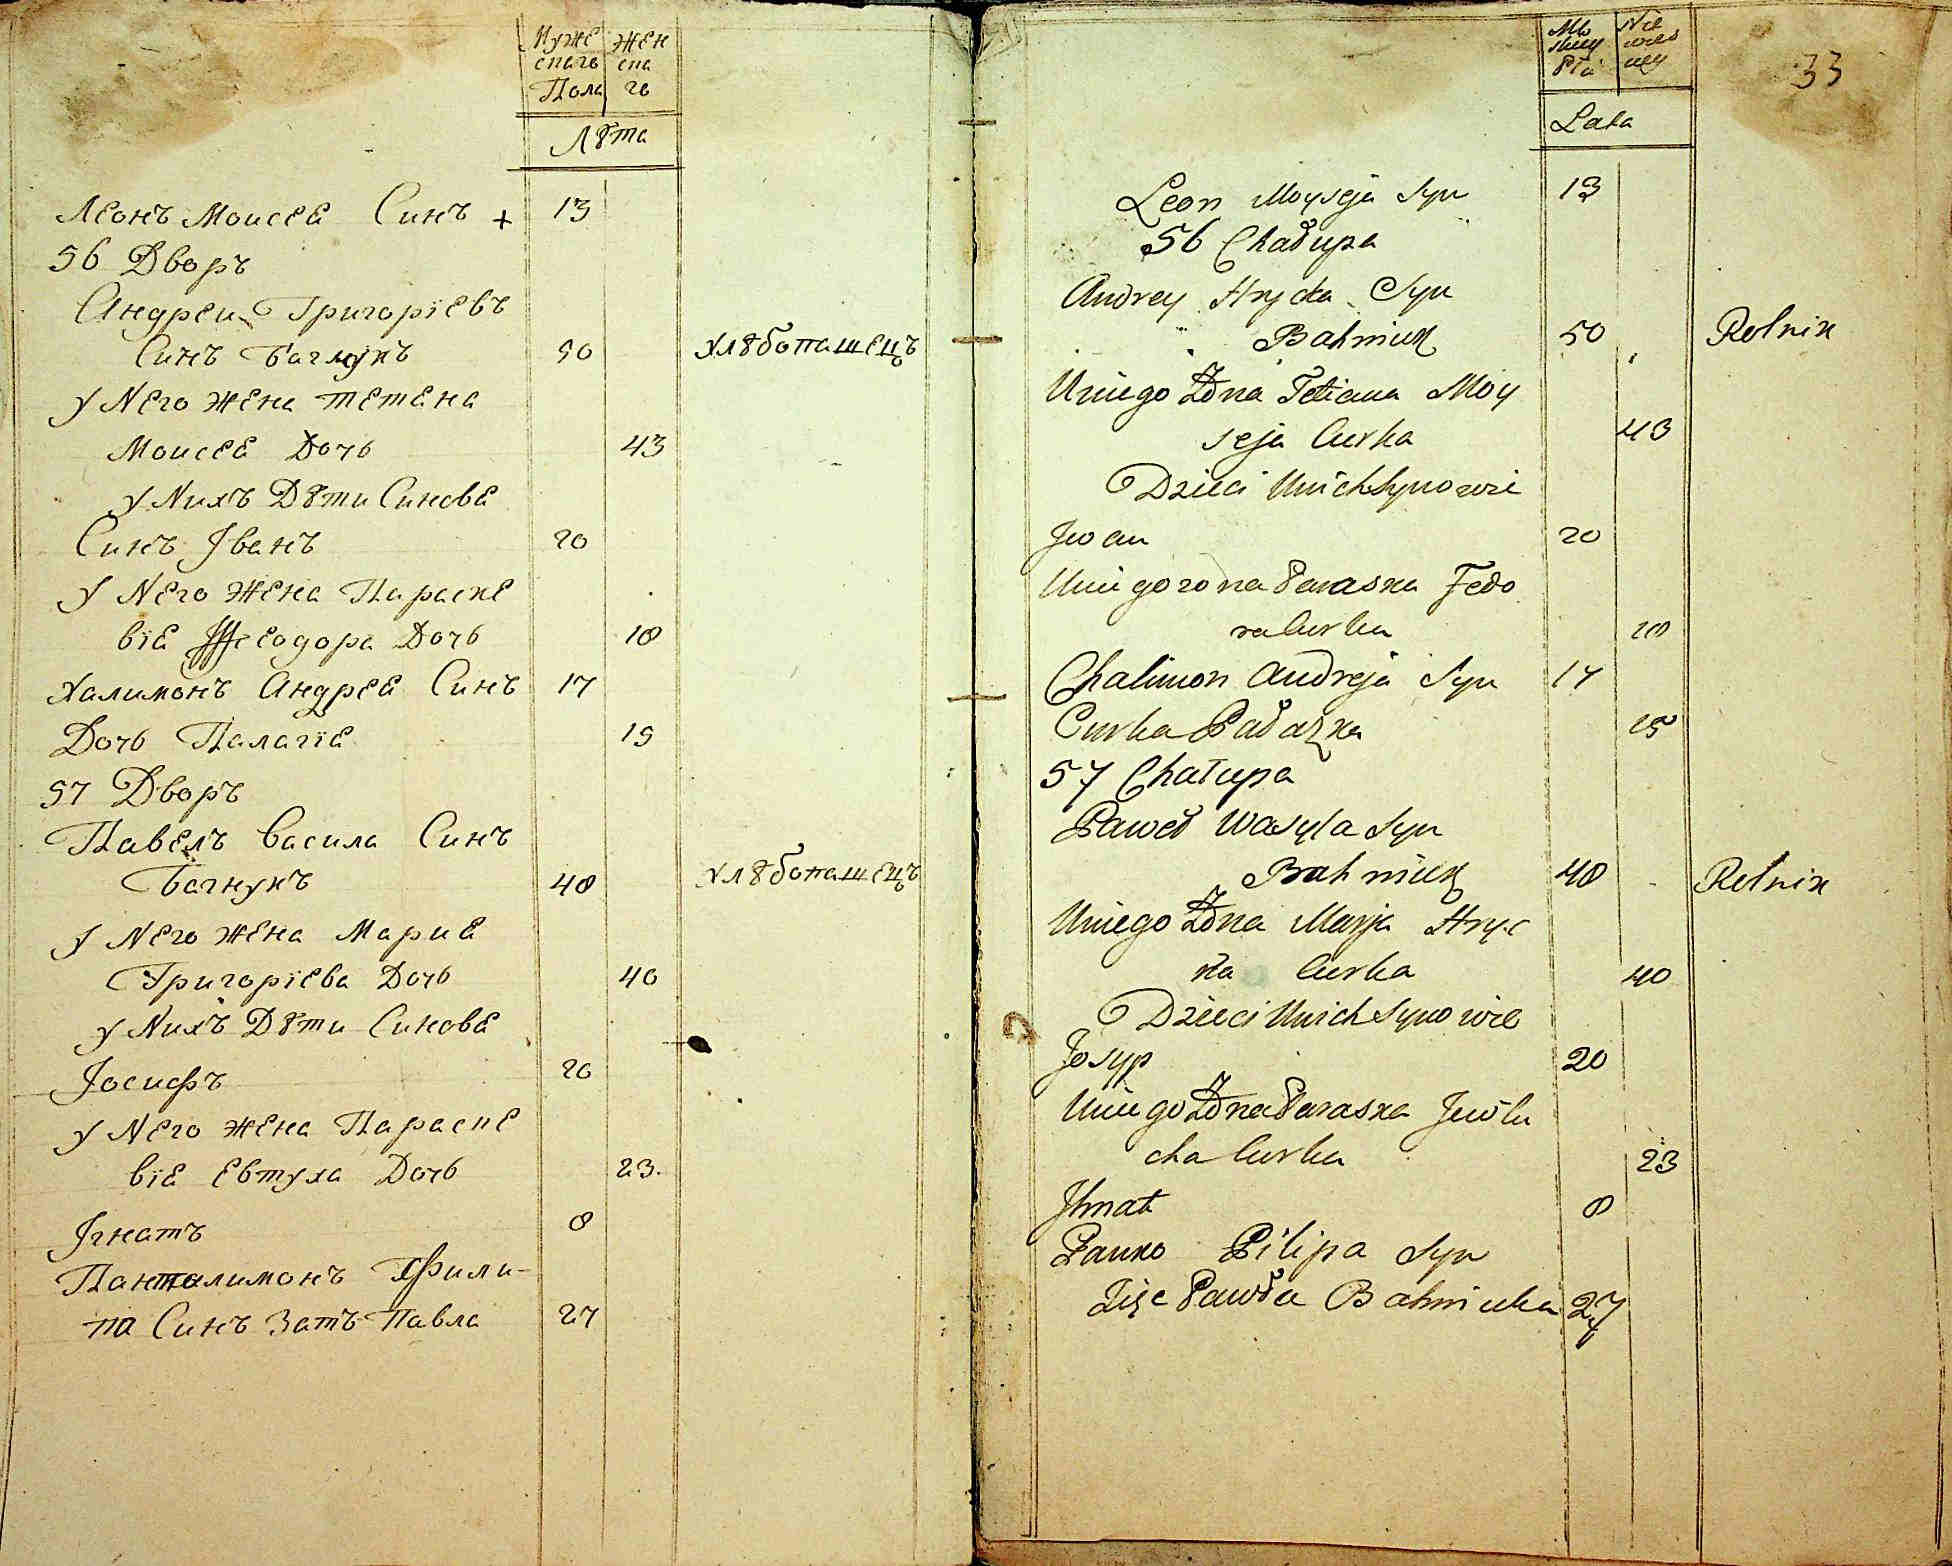 Муже Жен
скаго ска
Пола го
Лѣта
Леонъ Моисеа Синъ + 13
56 Дворъ
Андреи Григорїевъ
Синъ Багнукъ 50 Хлѣбопашецъ
у Него жена Тетана
Моисеа Дочь 43
у Нихъ Дѣти Синова
Синъ Іванъ 20
У Него Жена Параске
вїа Ѳеодора Дочь 18
Халимонъ Андреа Синъ 17
Дочь Палагїа 15
57 Дворъ
Павелъ Васила Синъ
Багнукъ 48 Хлѣбопашецъ
у Него жена Мариа
Григорїева Дочь 40
у Нихъ Дѣти Синова
Іосифъ 20
у Него жена Параске
вїа Евтуха Дочь 23.
Ігнатъ 8
Панталимонъ Фили-
па Синъ Зать Павла 27
33
Mę Nie
skiey wies
Płci ciey
Lata
Leon Moyseja Syn 13
56 Chałupa
Andrey Hrycka Syn
Bahniuk 50 Rolnik
Uniego Żona Tetiana Moy
seja Curka 43
Dzieci Unich Synowie
Jwan 20
Uniego zona Paraska Fedo
ra Curka 18
Chalimon Andreja Syn 17
Curka Pałazka 15
57 Chałupa
Paweł Wasyla Syn
Bahniuk 48 Rolnik
Uniego Żona Marja Hryc
ka Curka 40
Dzieci Unich Synowie
Josyp 20
Uniego Żona Paraska Jewtu
cha Curka 23
Jhnat 8
Panko Pilipa Syn
Zięc Pawła Bahniuka 27